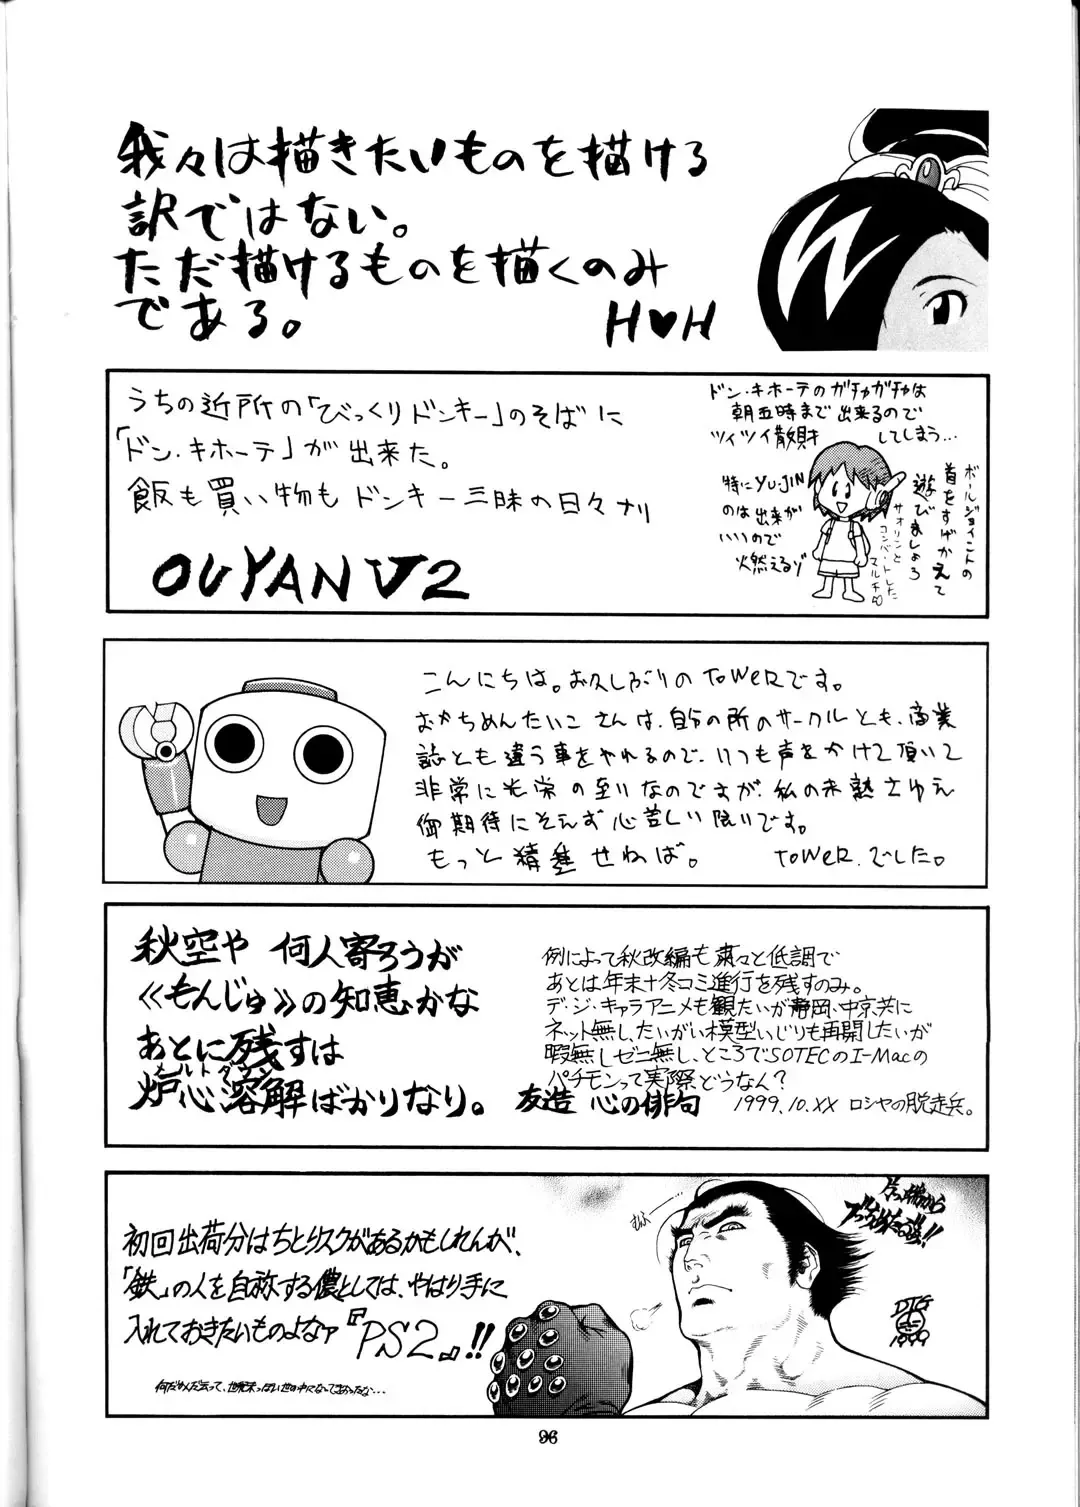 我々は描きたいものを描ける
訳ではない。
ただ描けるものを描くのみ
である。
H♥H
うちの近所の「びっくりドンキー」のそばに
「ドン・キホーテ」が出来た。
飯も買い物もドンキー三昧の日々ナリ
OUYAN V2
ドン・キホーテのガチャガチャは
朝五時まで出来るので
ツイツイ散財してしまう…
特にYUJIN
のは出来が
いいので
火然えるゾ
ボールジョイントの
首をすげかえて
遊びましょう
サオリンと
コンバートした
マルチ
こんにちは。お久しぶりのToWeRです。
おかちめんたいこさんは、自分の所のサークルとも、商業
誌とも違う事をやれるので、いつも声をかけて頂いて
非常に光栄の至りなのですが、私の未熟さゆえ
御期待にそえず心苦しい限りです。
もっと精進せねば。
ToWeR.でした。
秋空や 何人寄ろうが
《もんじゅ》の知恵かな
あとに残すは
メルトダウン
炉心溶解ばかりなり。
友造 心の俳句
例によって秋改編も粛々と低調で
あとは年末＋冬コミ進行を残すのみ。
デ・ジ・キャラアニメも観たいが静岡、中京共に
ネット無し、たいがい模型いじりも再開したいが
暇無しゼニ無し、ところでSOTECのI-Macの
パチモンって実際どうなん？
1999.10.XX ロシヤの脱走兵。
初回出荷分はちとリスクがあるかもしれんが、
「鉄」の人を自称する儂としては、やはり手に
入れておきたいものよなァ『PS2』!!
1999
96